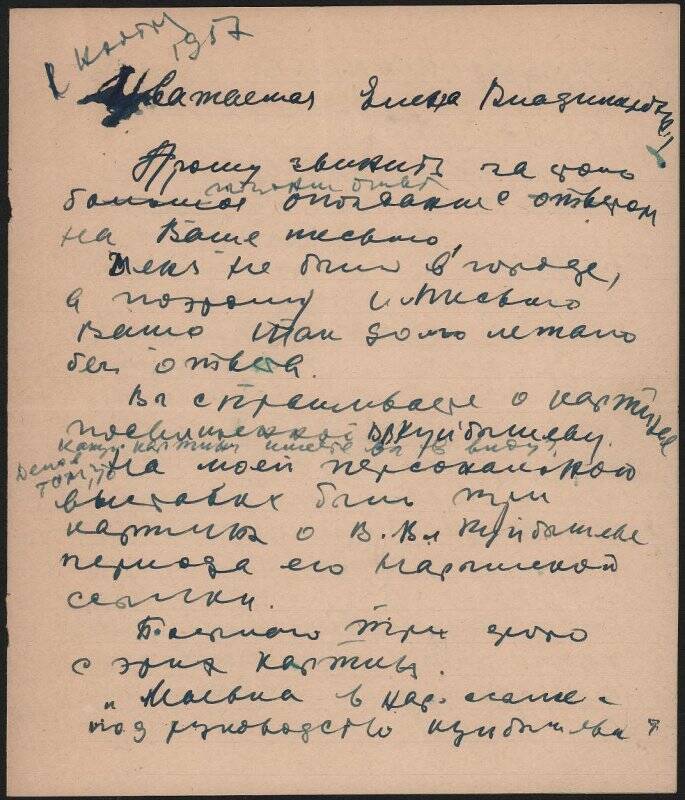 1957
Уважаемая Елена Владимировна!
Прошу звинить за столь
большое опоздание с ответом
на Ваше письмо,
Меня не было в городе,
а поэтому и письмо
Ваше так долго лежало
без ответа.
Вы спрашиваете о картине
посвященной В.В. Куйбышеву.
какую картину имеете вы в виду,
Дело в том, что
На моей персональной
выставке были три
картины о В.Вл Куйбышеве
периода его Нарымской
ссылки.
Посылаю три фото
с этих картин.
"Маевка в Нар. ссылке
под руководство куйбышева"